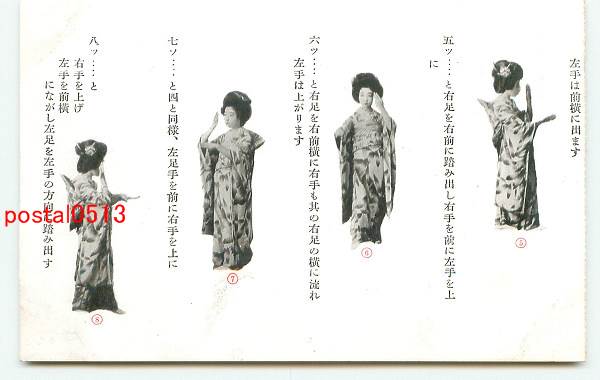 左手は前横に出ます
五ッ‥‥と右足を右前に踏み出し右手を前に左手を上
に
六ッ‥‥と右足を右前横に右手も其の右足の横に流れ
左手は上がります
七ッ‥‥と四と同樣、左足手を前に右手を上に
八ッ‥‥と
右手を上げ
左手を前横
にながし左足を左手の方向に踏み出す
⑤
⑥
⑦
⑧
postal0513